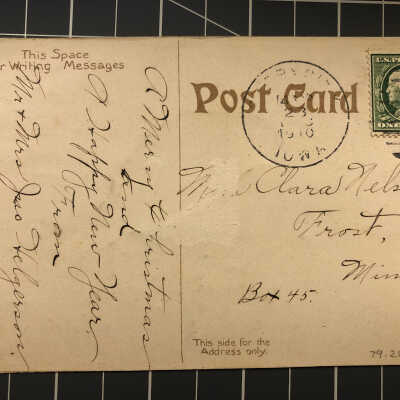 This Space
r Writing Messages
A Merry Christmas
and
A Happy New Year
From
Mr & Mrs Jno Helgerson.
Post Card
IOWA
U.S.P
ONE
Clara Nels
Frost,
Min
Box 45.
This side for the
Address only.
79.20